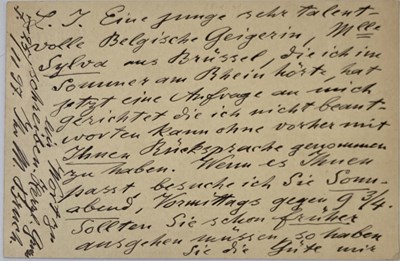 L. J. Eine junge sehr talent-
volle Belgische Geigerin, Mlle
Sylva aus Brüssel, die ich im
Sommer am Rhein hörte, hat
jetzt eine Anfrage an mich
gerichtet die ich nicht beant-
worten kann ohne vorher mit
Ihnen Rücksprache genommen
zu haben. Wenn es Ihnen
passt besuche ich Sie Sonn-
abend, Vormittags gegen 9 3/4.
Sollten Sie schon früher
ausgehen müssen, so haben
Sie die Güte mir
ein Wort zu
schreiben. Herzl. Gruss
M. Bruch.